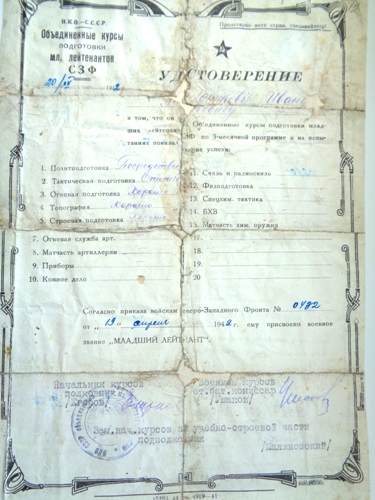 Н.К.О.—С.С.С.Р.
Объединенные курсы
подготовки
мл. лейтенантов
СЗФ
20/IV 1942
Пролетарии всех стран, соединяйтесь!
УДОСТОВЕРЕНИЕ
Иван
в том, что он
Объединенные курсы подготовки млад-
лейтенан
по 3-месячной программе и на испы-
таниях показал
успехи:
1. Политподготовка Посредств
2. Тактическая подготовка
3. Огневая подготовка Хорошо
4. Топография хорошо
5. Строевая подготовка хорошо
11. Связь и радиосвязь
12. Физподготовка
13. Спецхим. тактика
14. БХВ
15. Матчасть хим. оружия
7. Огневая служба арт.
8. Матчасть артиллерии
9. Приборы
10. Конное дело
17.
18.
19.
20
Согласно приказа войскам Северо-Западного Фронта № 0482
от „19" апреля 1942 г. ему присвоено военное
звание „МЛАДШИЙ ЛЕЙТЕНАНТ".
Начальник курсов
подполковник
военком курсов
ст.бат.комиссар
Зам.нач.курсов по учебно-строевой части
подполковник
/Малиновский/